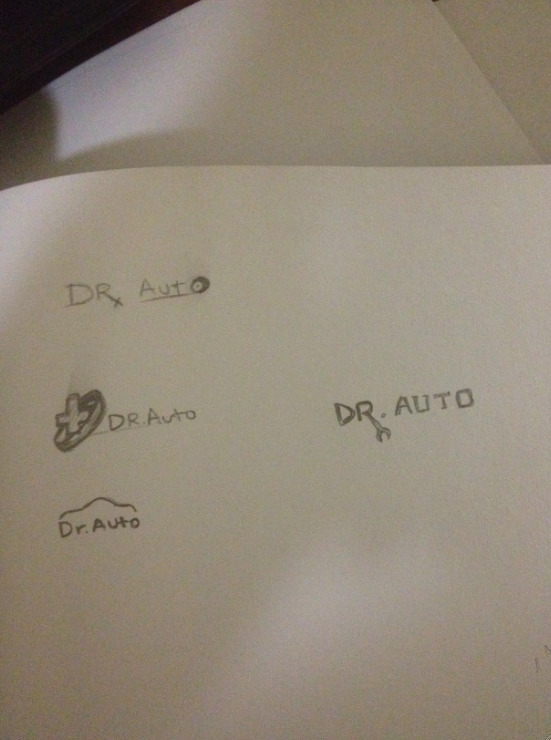 DRx Auto
DR. Auto
DR. AUTO
Dr. Auto